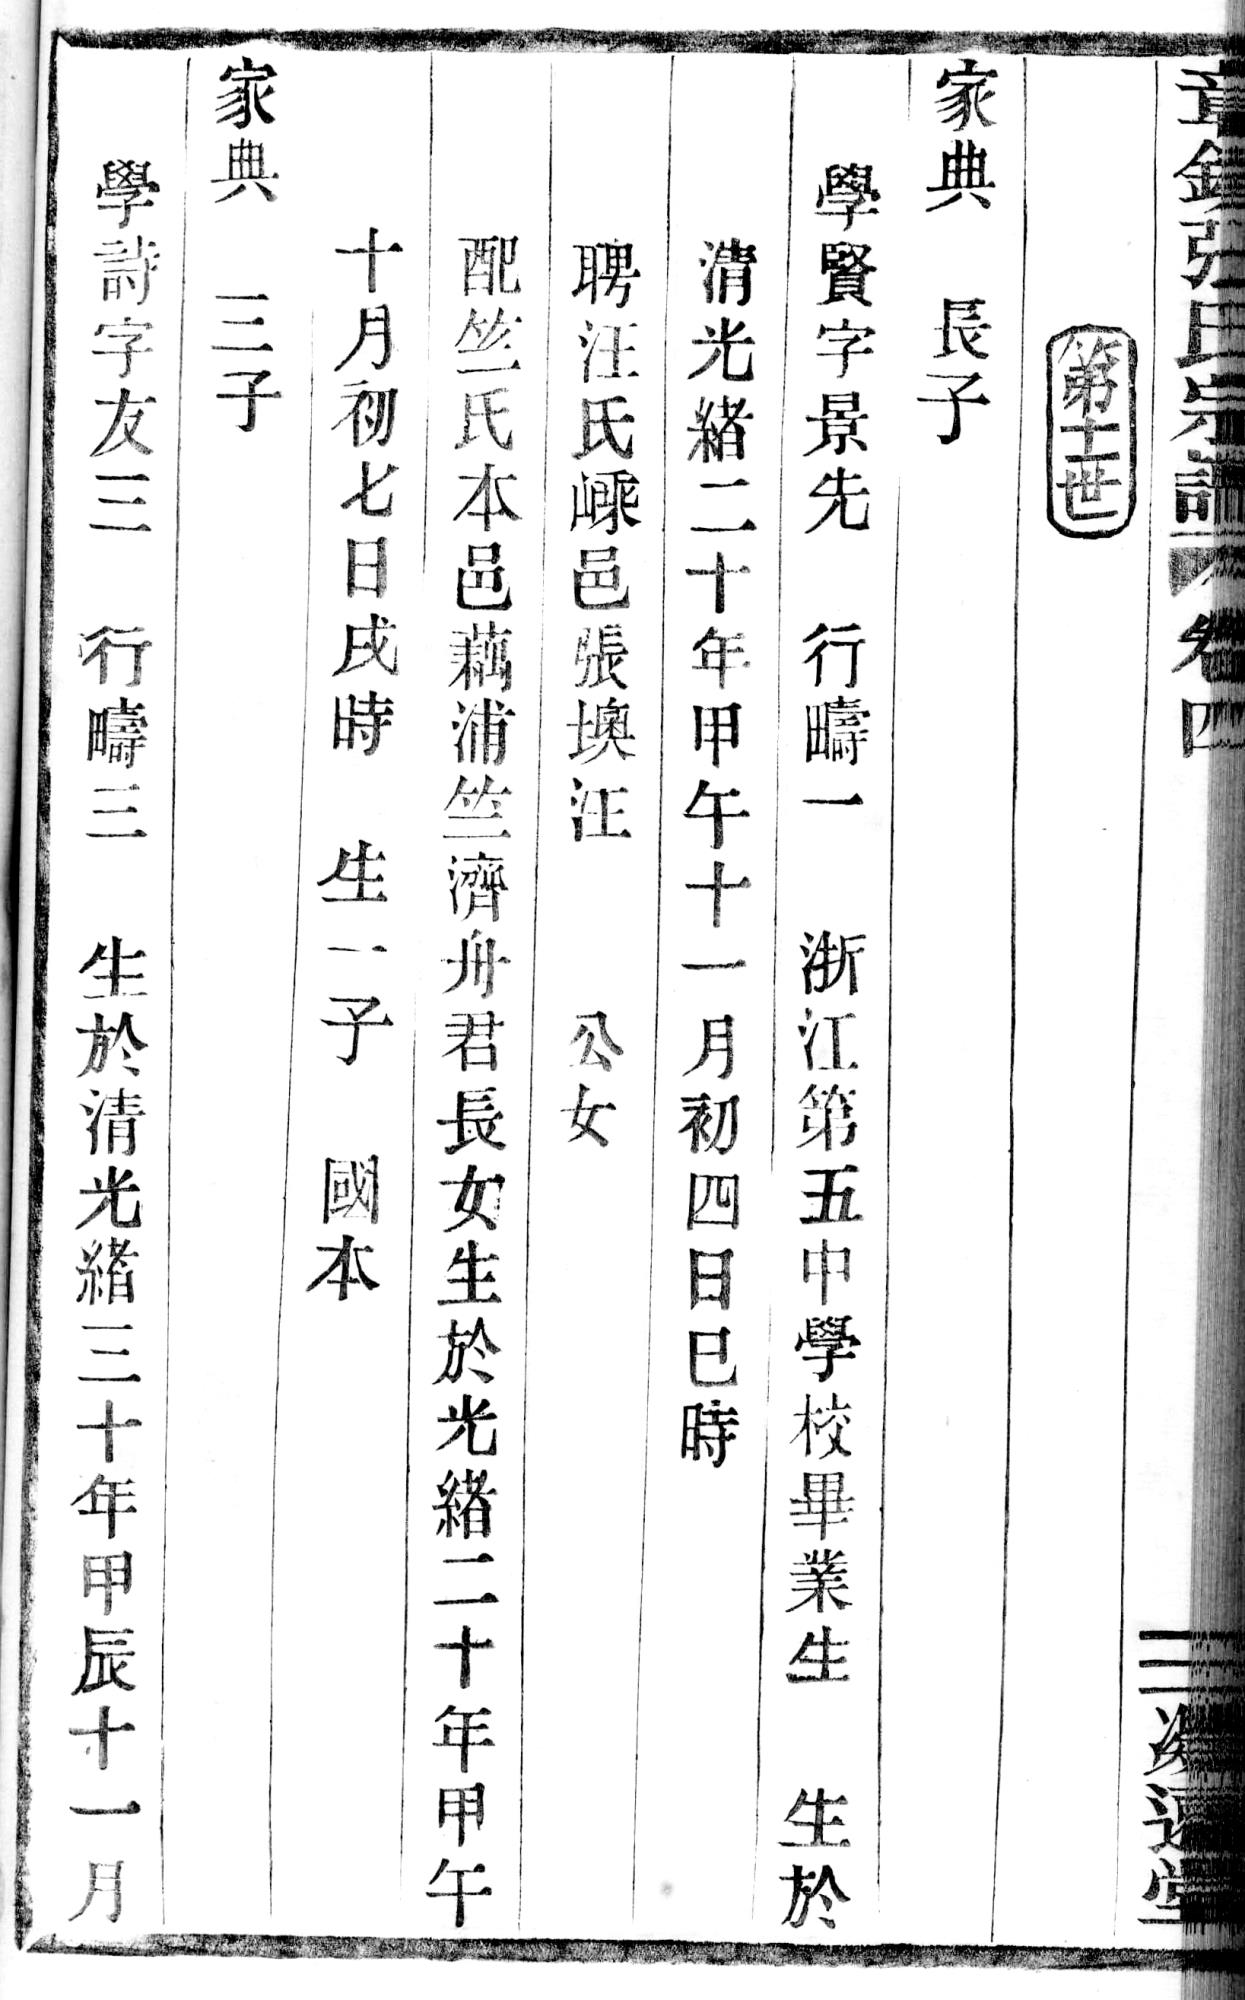 章鎮張氏宗譜 卷四 三 堂
第十一世
家典 長子
學賢字景先 行疇一 浙江第五中學校畢業生 生於
清光緒二十年甲午十一月初四日巳時
聘汪氏嵊邑張墺汪 公女
配竺氏本邑藕浦竺濟舟君長女生於光緒二十年甲午
十月初七日戌時 生一子 國本
家典 三子
學詩字友三 行疇三 生於清光緒三十年甲辰十一月